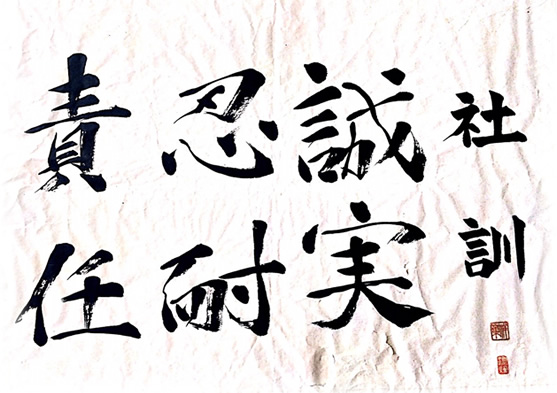 社訓
誠実
忍耐
責任